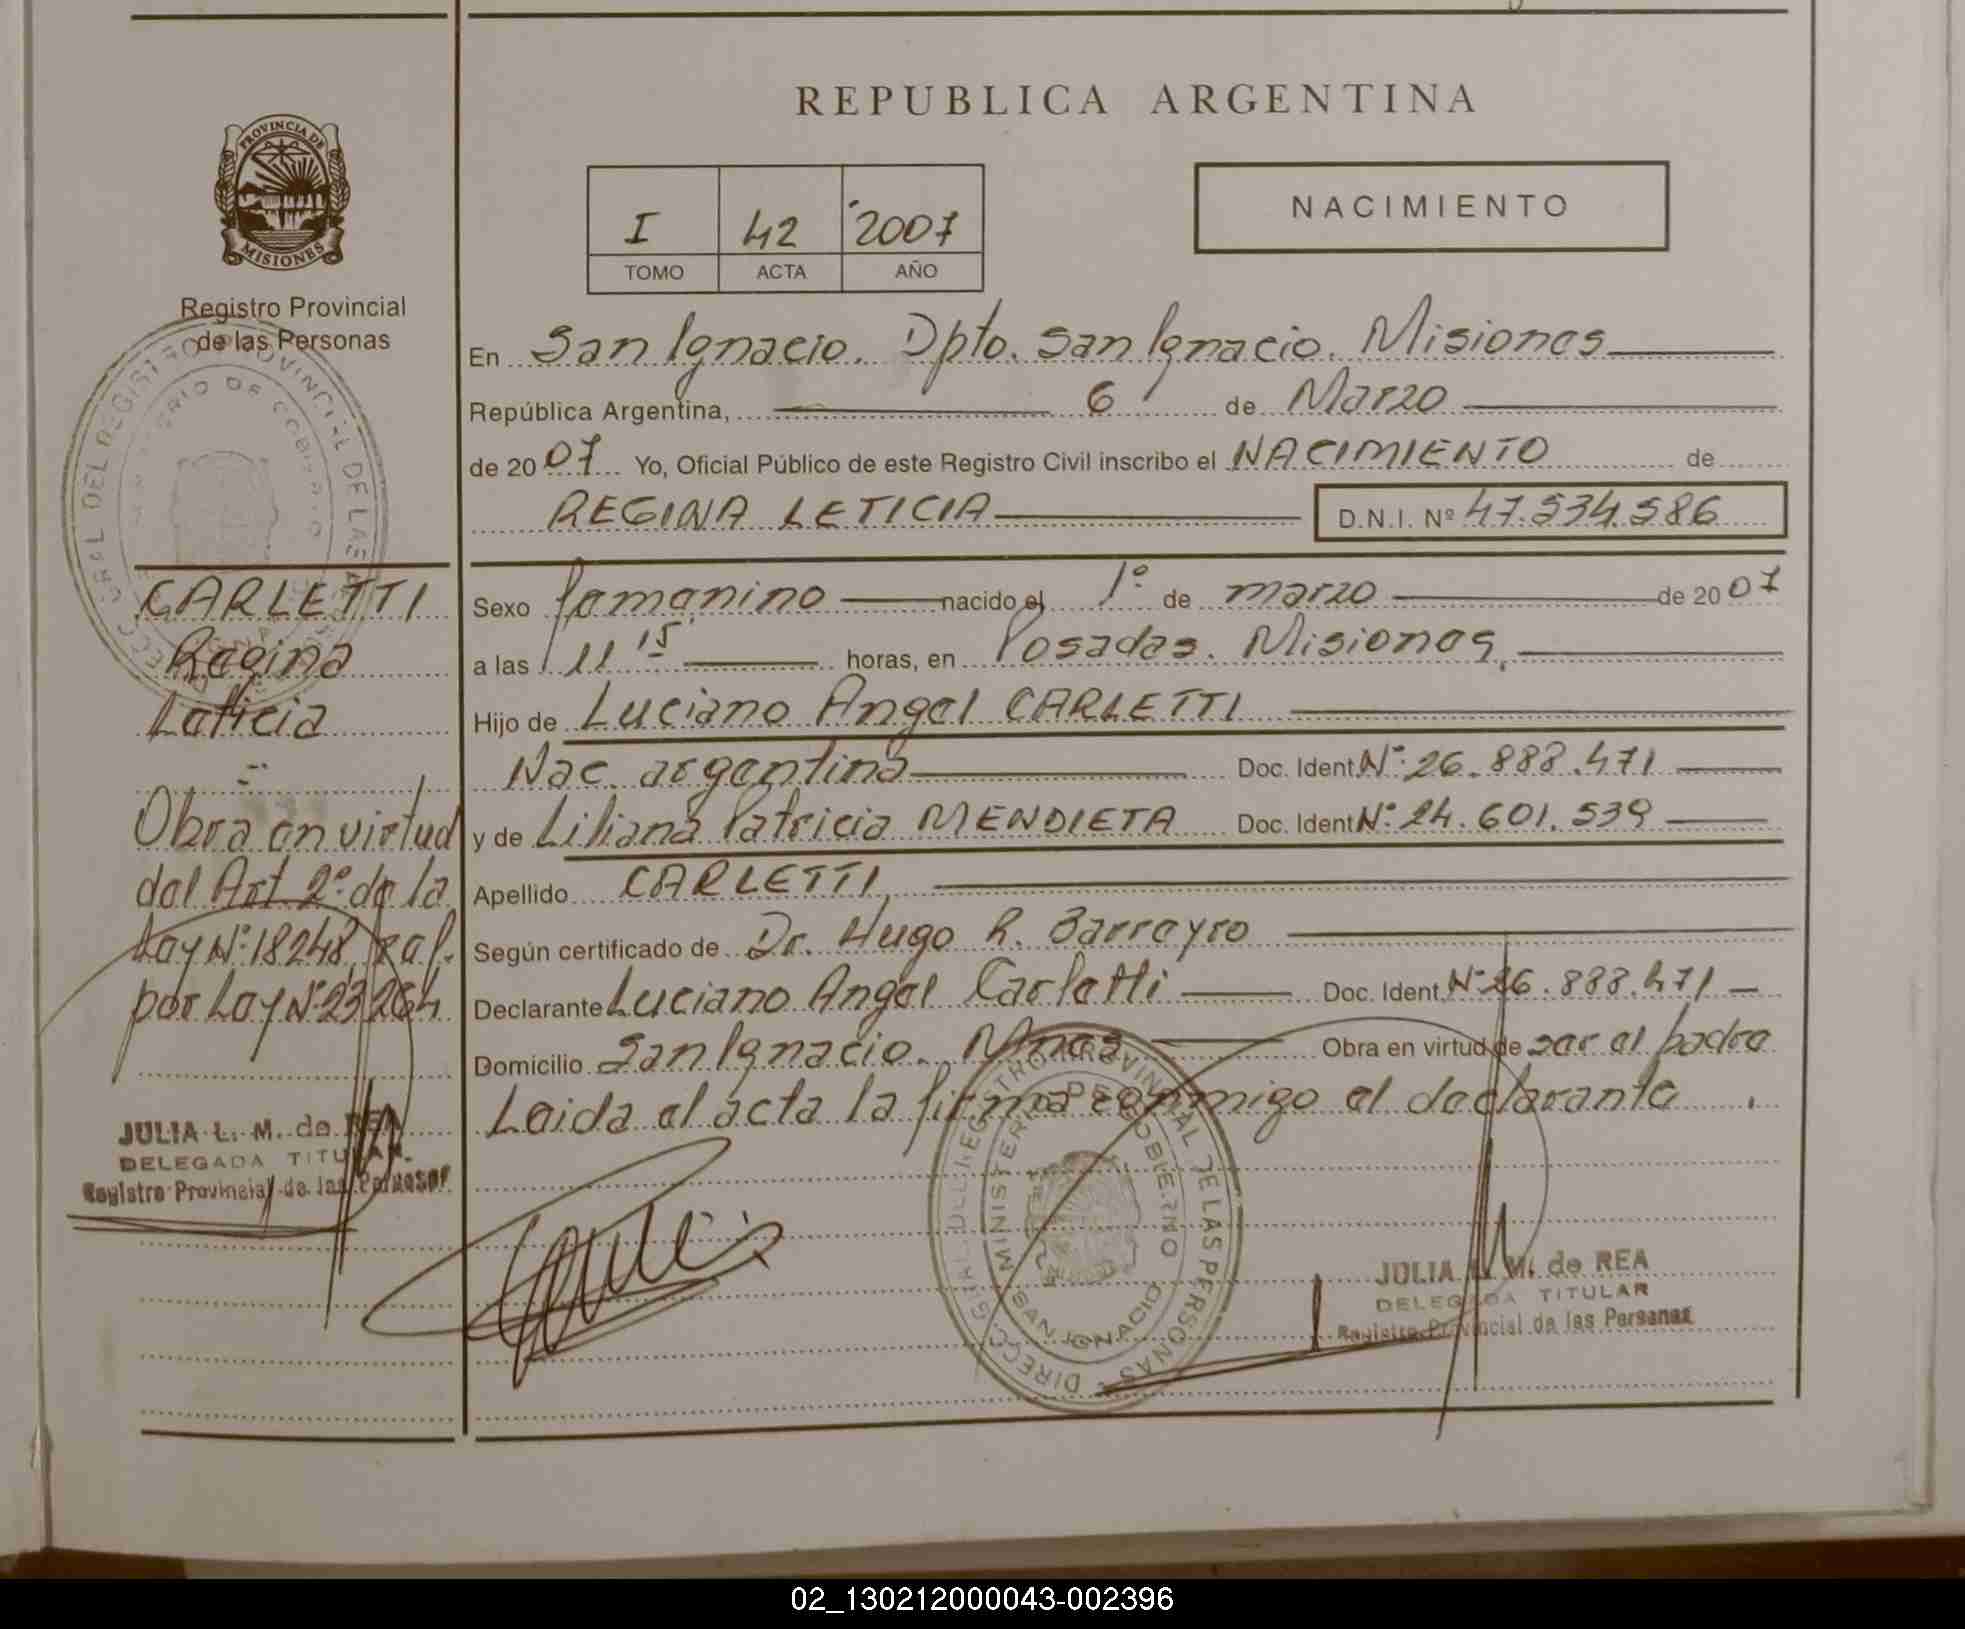 REPUBLICA ARGENTINA
PROVINCIA DE
MISIONES
Registro Provincial
de las Personas
I 42 2007
TOMO ACTA AÑO
NACIMIENTO
En San Ignacio. Dpto. San Ignacio. Misiones
República Argentina, 6 de Marzo
de 2007 Yo, Oficial Público de este Registro Civil inscribo el NACIMIENTO de
REGINA LETICIA D.N.I. Nº 47.534.586
Sexo femenino nacido el 1º de marzo de 2007
a las 11 15 horas, en Posadas. Misiones,
Hijo de Luciano Angel CARLETTI
Nac. argentina Doc. Ident. Nº 26.888.471
y de Liliana Patricia MENDIETA Doc. Ident. Nº 24.601.539
Apellido CARLETTI
Según certificado de Dr. Hugo R. Barreyro
Declarante Luciano Angel Carletti Doc. Ident. Nº 26.888.471
Domicilio San Ignacio. Mnes Obra en virtud de ser el padre
Leida el acta la firma conmigo el declarante.
CARLETTI
Regina
Leticia
Obra en virtud
del Art. 2º de la
Ley Nº 18248, ref.
por Ley Nº 23264
JULIA L. M. de REA
DELEGADA TITULAR
Registro Provincial de las Personas
DIRECC. GRAL DEL REGISTRO PROVINCIAL DE LAS PERSONAS
MINISTERIO DE GOBIERNO
SAN IGNACIO
JULIA L. M. de REA
DELEGADA TITULAR
Registro Provincial de las Personas
02_130212000043-002396